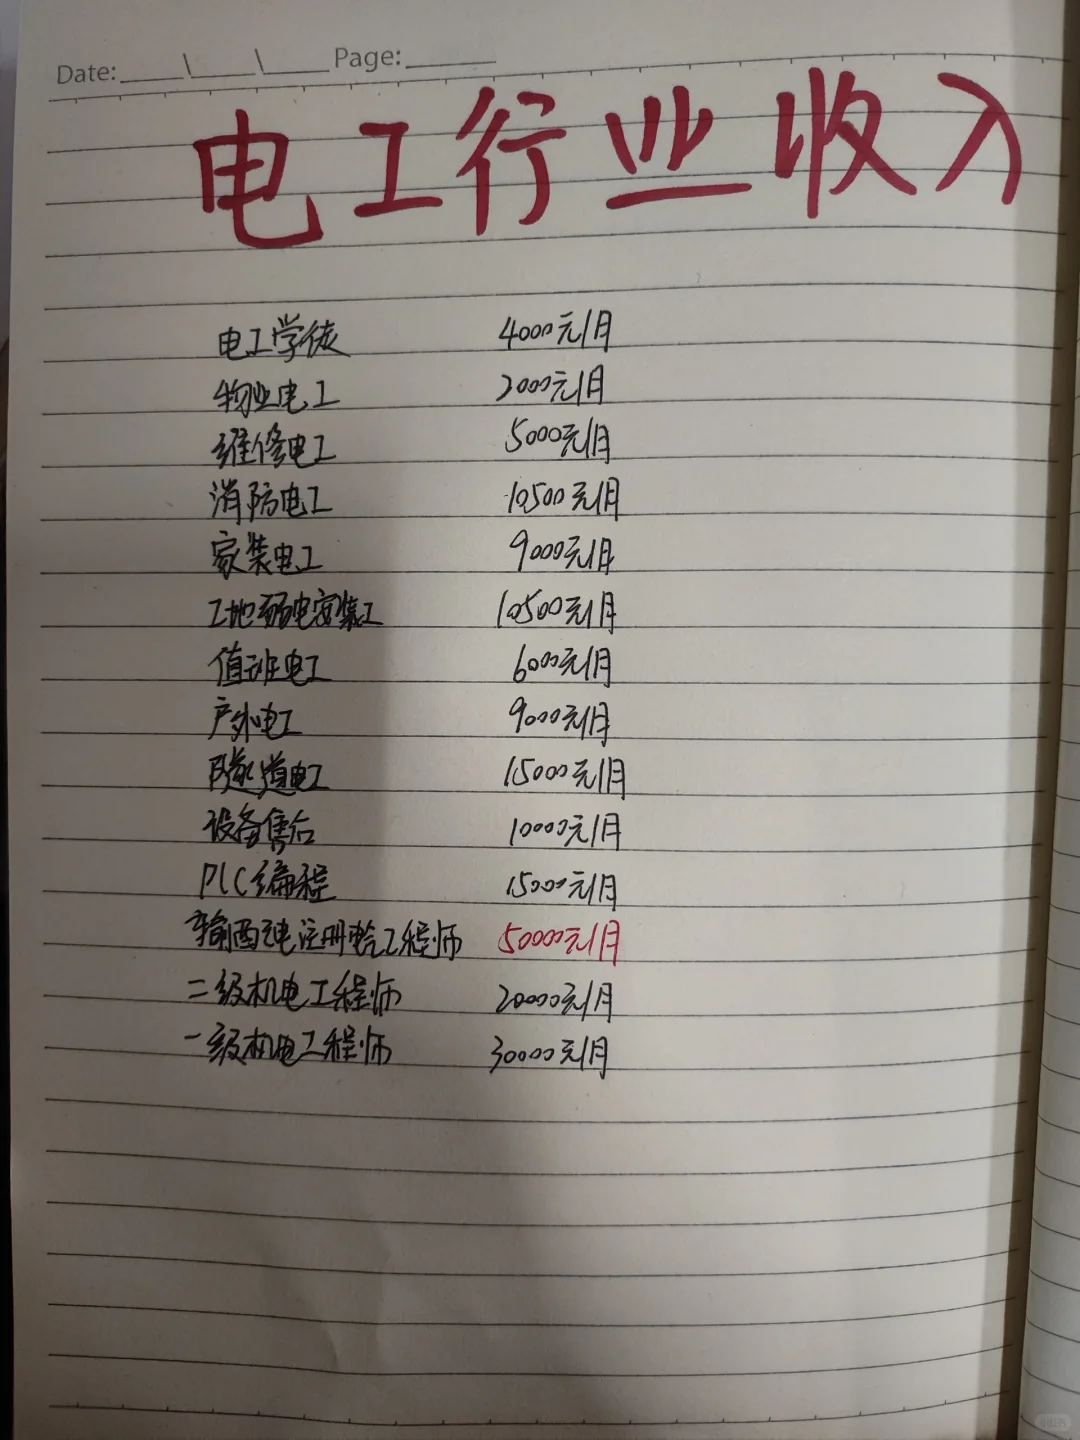 Date: \ \ Page:
电工行业收入
电工学徒 4000元/月
物业电工 2000元/月
维修电工 5000元/月
消防电工 10500元/月
家装电工 9000元/月
工地弱电安装工 10500元/月
值班电工 6000元/月
户外电工 9000元/月
隧道电工 15000元/月
设备售后 10000元/月
PLC编程 15000元/月
输配变电注册电气工程师 50000元/月
二级机电工程师 20000元/月
一级机电工程师 30000元/月
小红书